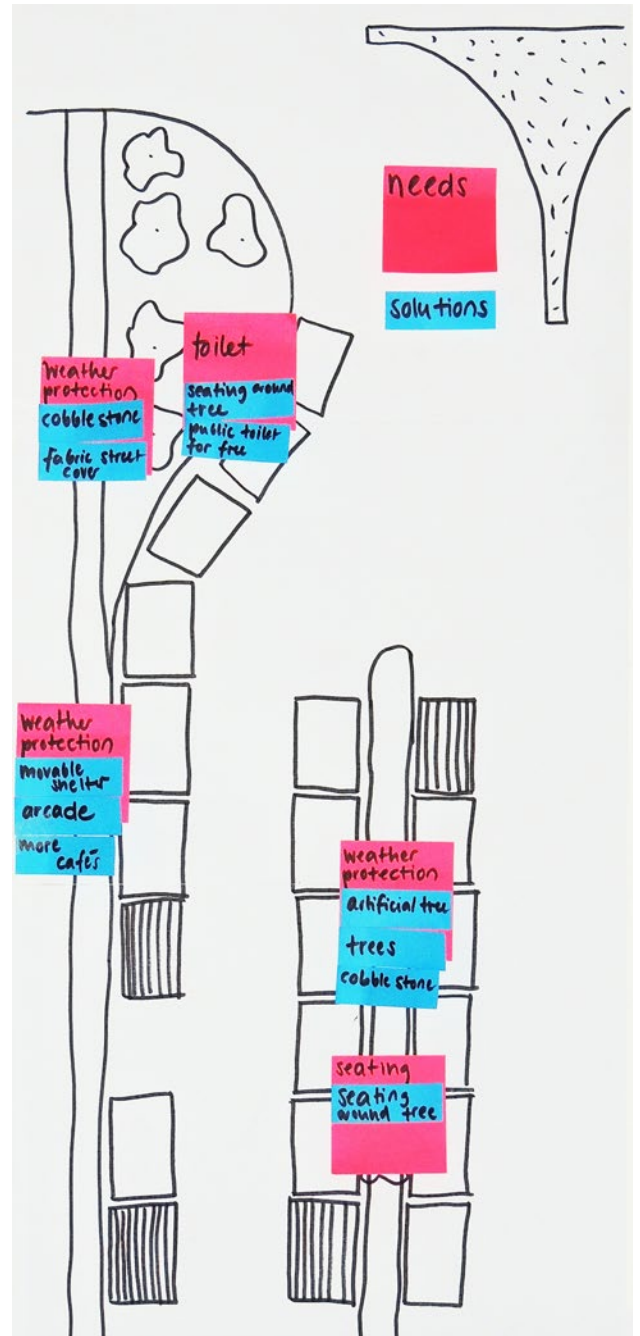 needs
solutions
toilet
seating around
tree
public toilet
for free
weather
protection
cobble stone
fabric street
cover
weather
protection
movable
shelter
arcade
more
cafés
weather
protection
artificial tree
trees
cobble stone
seating
seating
around tree